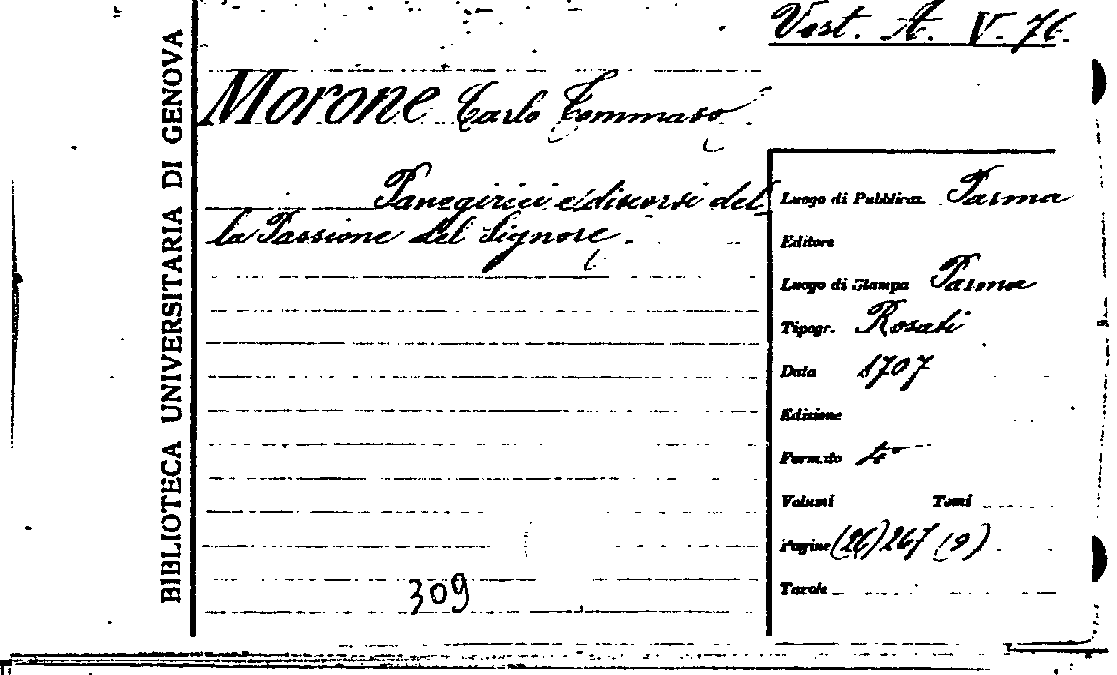 Vest. A. V. 76.
BIBLIOTECA UNIVERSITARIA DI GENOVA
Morone Carlo Tommaso
Panegirici e discorsi del
la Passione del Signore.
Luogo di Pubblicaz. Parma
Editore
Luogo di Stampa Parma
Tipogr. Rosati
Data 1707
Edizione
Formato 4°
Volumi Tomi
Pagine (26) 267 (9)
Tavole
309